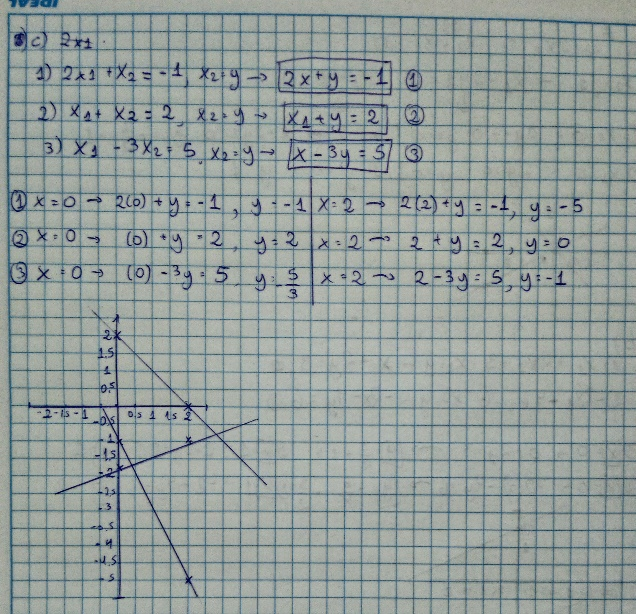 IDEAL
c) 2x1
1) 2x1 + x2 = -1, x2=y → 2x+y = -1 ①
2) x1 + x2 = 2, x2=y → x1+y = 2 ②
3) x1 - 3x2 = 5, x2=y → x - 3y = 5 ③
① x=0 → 2(0) + y = -1, y = -1 | x=2 → 2(2)+y = -1, y = -5
② x=0 → (0) + y = 2, y=2 | x=2 → 2 + y = 2, y=0
③ x=0 → (0) - 3y = 5, y=-5/3 | x=2 → 2 - 3y = 5, y=-1
2
1,5
1
0,5
-2 -1,5 -1 0,5 1 1,5 2
-0,5
-1
-1,5
-2
-2,5
-3
-3,5
-4
-4,5
-5